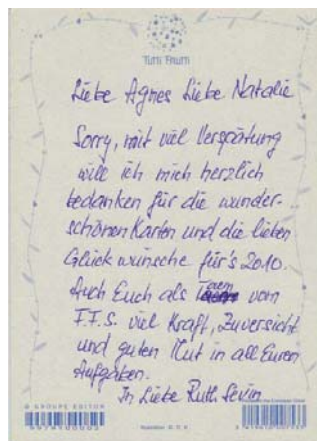 TUTTI FRUTTI
Liebe Agnes Liebe Natalie
Sorry, mit viel Verspätung
will ich mich herzlich
bedanken für die wunder-
schönen Karten und die lieben
Glückwünsche für's 2010.
Auch Euch als Team vom
F.F.S. viel Kraft, Zuversicht
und guten Mut in all Euren
Aufgaben.
In Liebe Ruth Sevin
© GROUPE EDITOR